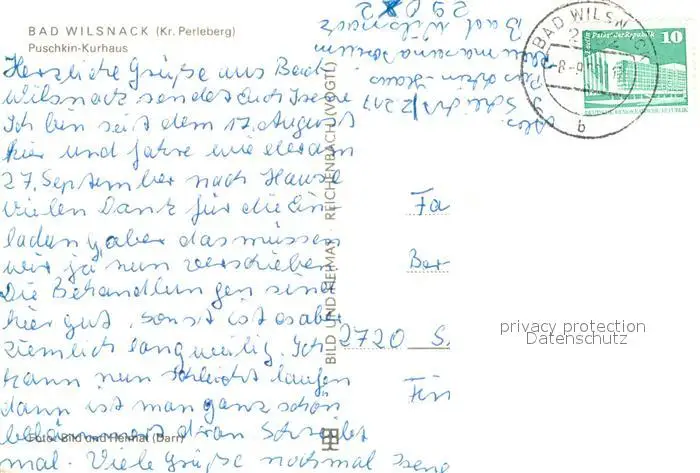 BAD WILSNACK (Kr. Perleberg)
Puschkin-Kurhaus
Herzliche Grüße aus Bad
Wilsnack sendet Euch Irene
Ich bin seit dem 17. August
hier und fahre wieder am
27. September nach Hause
Vielen Dank für die Ein-
ladung, aber das müssen
wir ja nun verschieben
Die Behandlungen sind
hier gut, sonst ist es aber
ziemlich langweilig. Ich
kann nun schlecht laufen
dann ist man ganz schön
dran Schreibt
mal. Viele Grüße nochmal Irene
Foto: Bild und Heimat (Darr)
BILD UND HEIMAT REICHENBACH (VOGTL)
Haus
Bad Wilsnack
29
BAD WILSN
b
Palast der Republik
10
DEUTSCHE DEMOKRATISCHE REPUBLIK
Fa
Ber
2720 S
privacy protection
Datenschutz